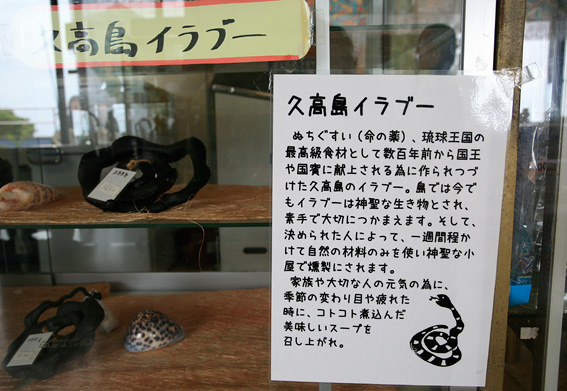 久高島イラブー
久高島イラブー
ぬちぐすい（命の薬）、琉球王国の
最高級食材として数百年前から国王
や国賓に献上される為に作られつづ
けた久高島のイラブー。島では今で
もイラブーは神聖な生き物とされ、
素手で大切につかまえます。そして、
決められた人によって、一週間程か
けて自然の材料のみを使い神聖な小
屋で燻製にされます。
家族や大切な人の元気の為に、
季節の変わり目や疲れた
時に、コトコト煮込んだ
美味しいスープを
召し上がれ。